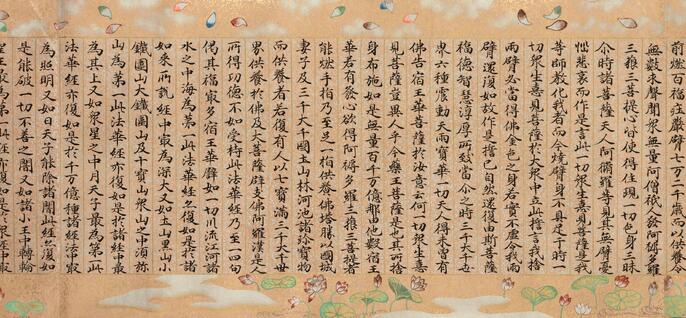 前燃百福莊嚴臂七万二千歲而以供養令
無數求聲聞衆無量阿僧祇人發阿耨多羅
三藐三菩提心皆使得住現一切色身三昧
尒時諸菩薩天人阿脩羅等見其無臂憂
惱悲哀而作是言此一切衆生憙見菩薩是我
等師教化我者而今燒臂身不具足于時一
切衆生憙見菩薩於大衆中立此誓言我捨
兩臂必當得佛金色之身若實不虛令我兩
臂還復如故作是誓已自然還復由斯菩薩
福德智慧淳厚所致當尒之時三千大千世
界六種震動天雨寶華一切天人得未曾有
佛告宿王華菩薩於汝意云何一切衆生憙
見菩薩豈異人乎今藥王菩薩是也其所捨
身布施如是無量百千万億那由他數宿王
華若有發心欲得阿耨多羅三藐三菩提者
能燃手指乃至足一指供養佛塔勝以國城
妻子及三千大千國土山林河池諸珍寶物
而供養者若復有人以七寶滿三千大千世
界供養於佛及大菩薩辟支佛阿羅漢是人
所得功德不如受持此法華經乃至一四句
偈其福最多宿王華譬如一切川流江河諸
水之中海為第一此法華經亦復如是於諸
如來所說經中最為深大又如土山黑山小
鐵圍山大鐵圍山及十寶山衆山之中須弥
山為第一此法華經亦復如是於諸經中最
為其上又如衆星之中月天子最為第一此
法華經亦復如是於千万億種諸經法中最
為照明又如日天子能除諸闇此經亦復如
是能破一切不善之闇又如諸小王中轉輪
聖王最為第一此經亦復如是於衆經中最